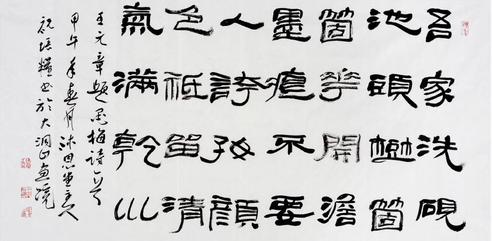 吾家洗硯
池頭樹箇
箇華開澹
墨痕不要
人誇好顏
色祗留清
氣滿乾巛
王元章題墨梅詩一首
甲午年春月沐思堂主人
祝培糧書於大澗山